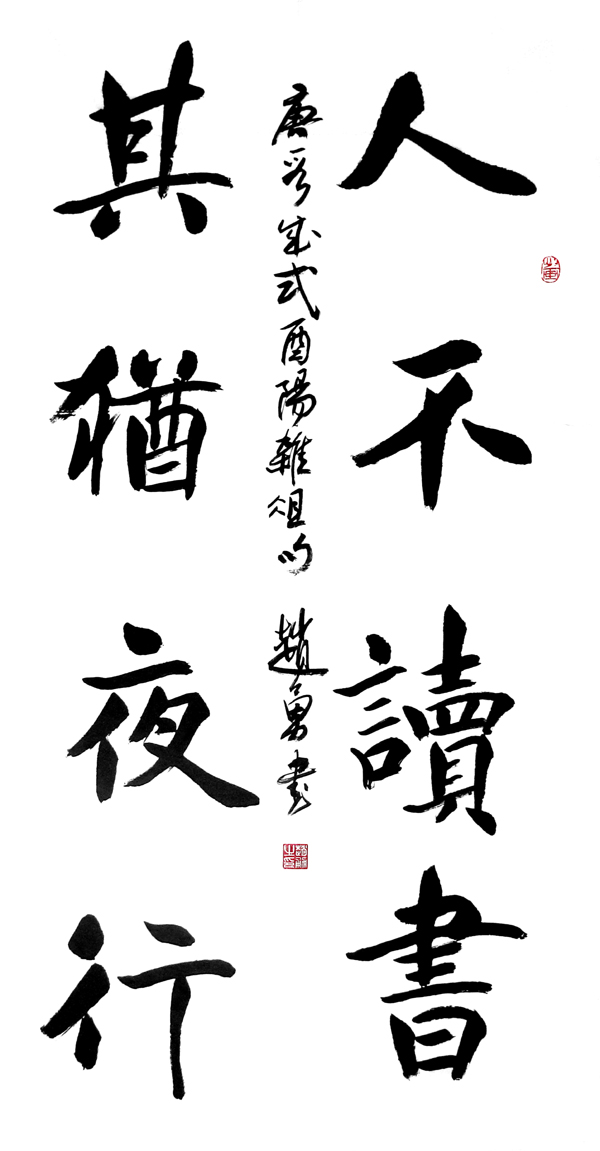 人不讀書
其猶夜行
唐段成式酉陽雜俎句 趙勇書